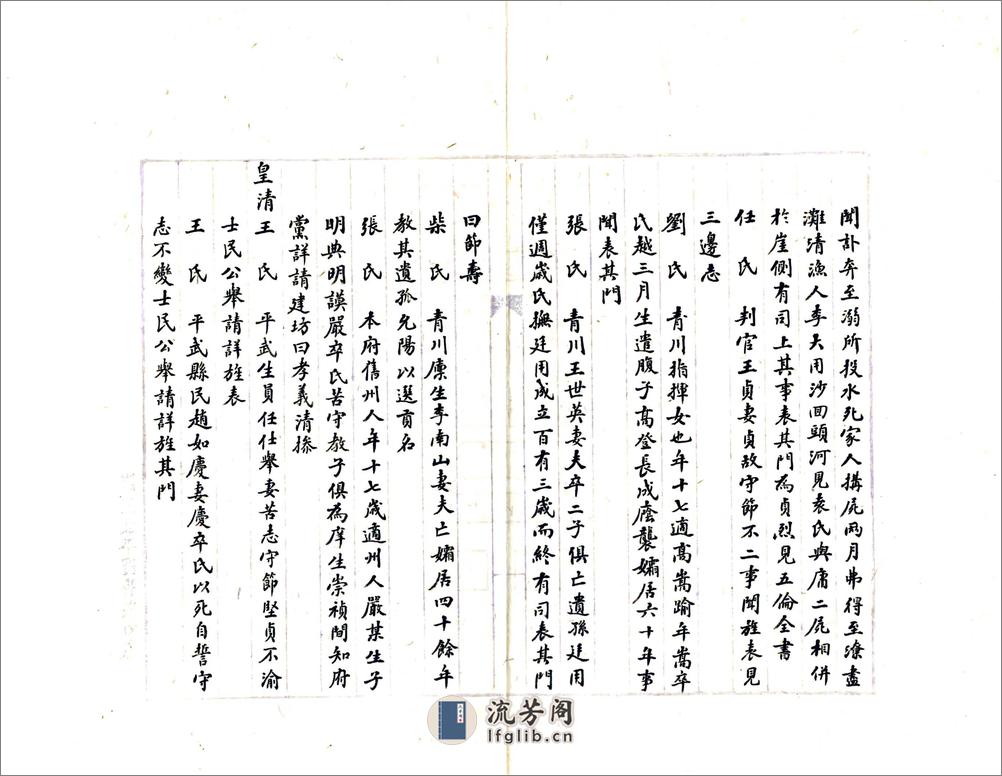 聞訃奔至溺所投水死家人搆屍兩月弗得至潦盡
灘清漁人李大用沙回頭河見袁氏與庸二屍相併
於崖側有司上其事表其門為貞烈見五倫全書
任 氏 判官王貞妻貞故守節不二事聞旌表見
三邊志
劉 氏 青川指揮女也年十七適高嵩踰年嵩卒
氏越三月生遺腹子高登長成廕襲孀居六十年事
聞表其門
張 氏 青川王世英妻夫卒二子俱亡遺孫廷用
僅週歲氏撫廷用成立百有三歲而終有司表其門
曰節壽
柴 氏 青川廩生李南山妻夫亡孀居四十餘年
教其遺孤允陽以選貢名
張 氏 本府舊州人年十七歲適州人嚴某生子
明典明謨嚴卒氏苦守教子俱為庠生崇禎間知府
黨詳請建坊曰孝義清操
皇清王 氏 平武生員任仕舉妻苦志守節堅貞不渝
士民公舉請詳旌表
王 氏 平武縣民趙如慶妻慶卒氏以死自誓守
志不變士民公舉請詳旌其門
流芳阁
lfglib.cn